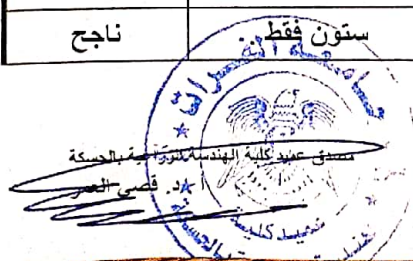 ستون فقط ناجح
جامعة الفرات
مصدق عميد كلية الهندسة الزراعية بالحسكة
أ.د. قصي العمر
عميد كلية